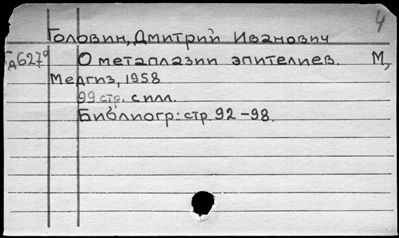 4
Головин, Дмитрий Иванович
О метаплазии эпителиев. М,
Медгиз, 1958
99 стр. с илл.
Библиогр: стр. 92-98.